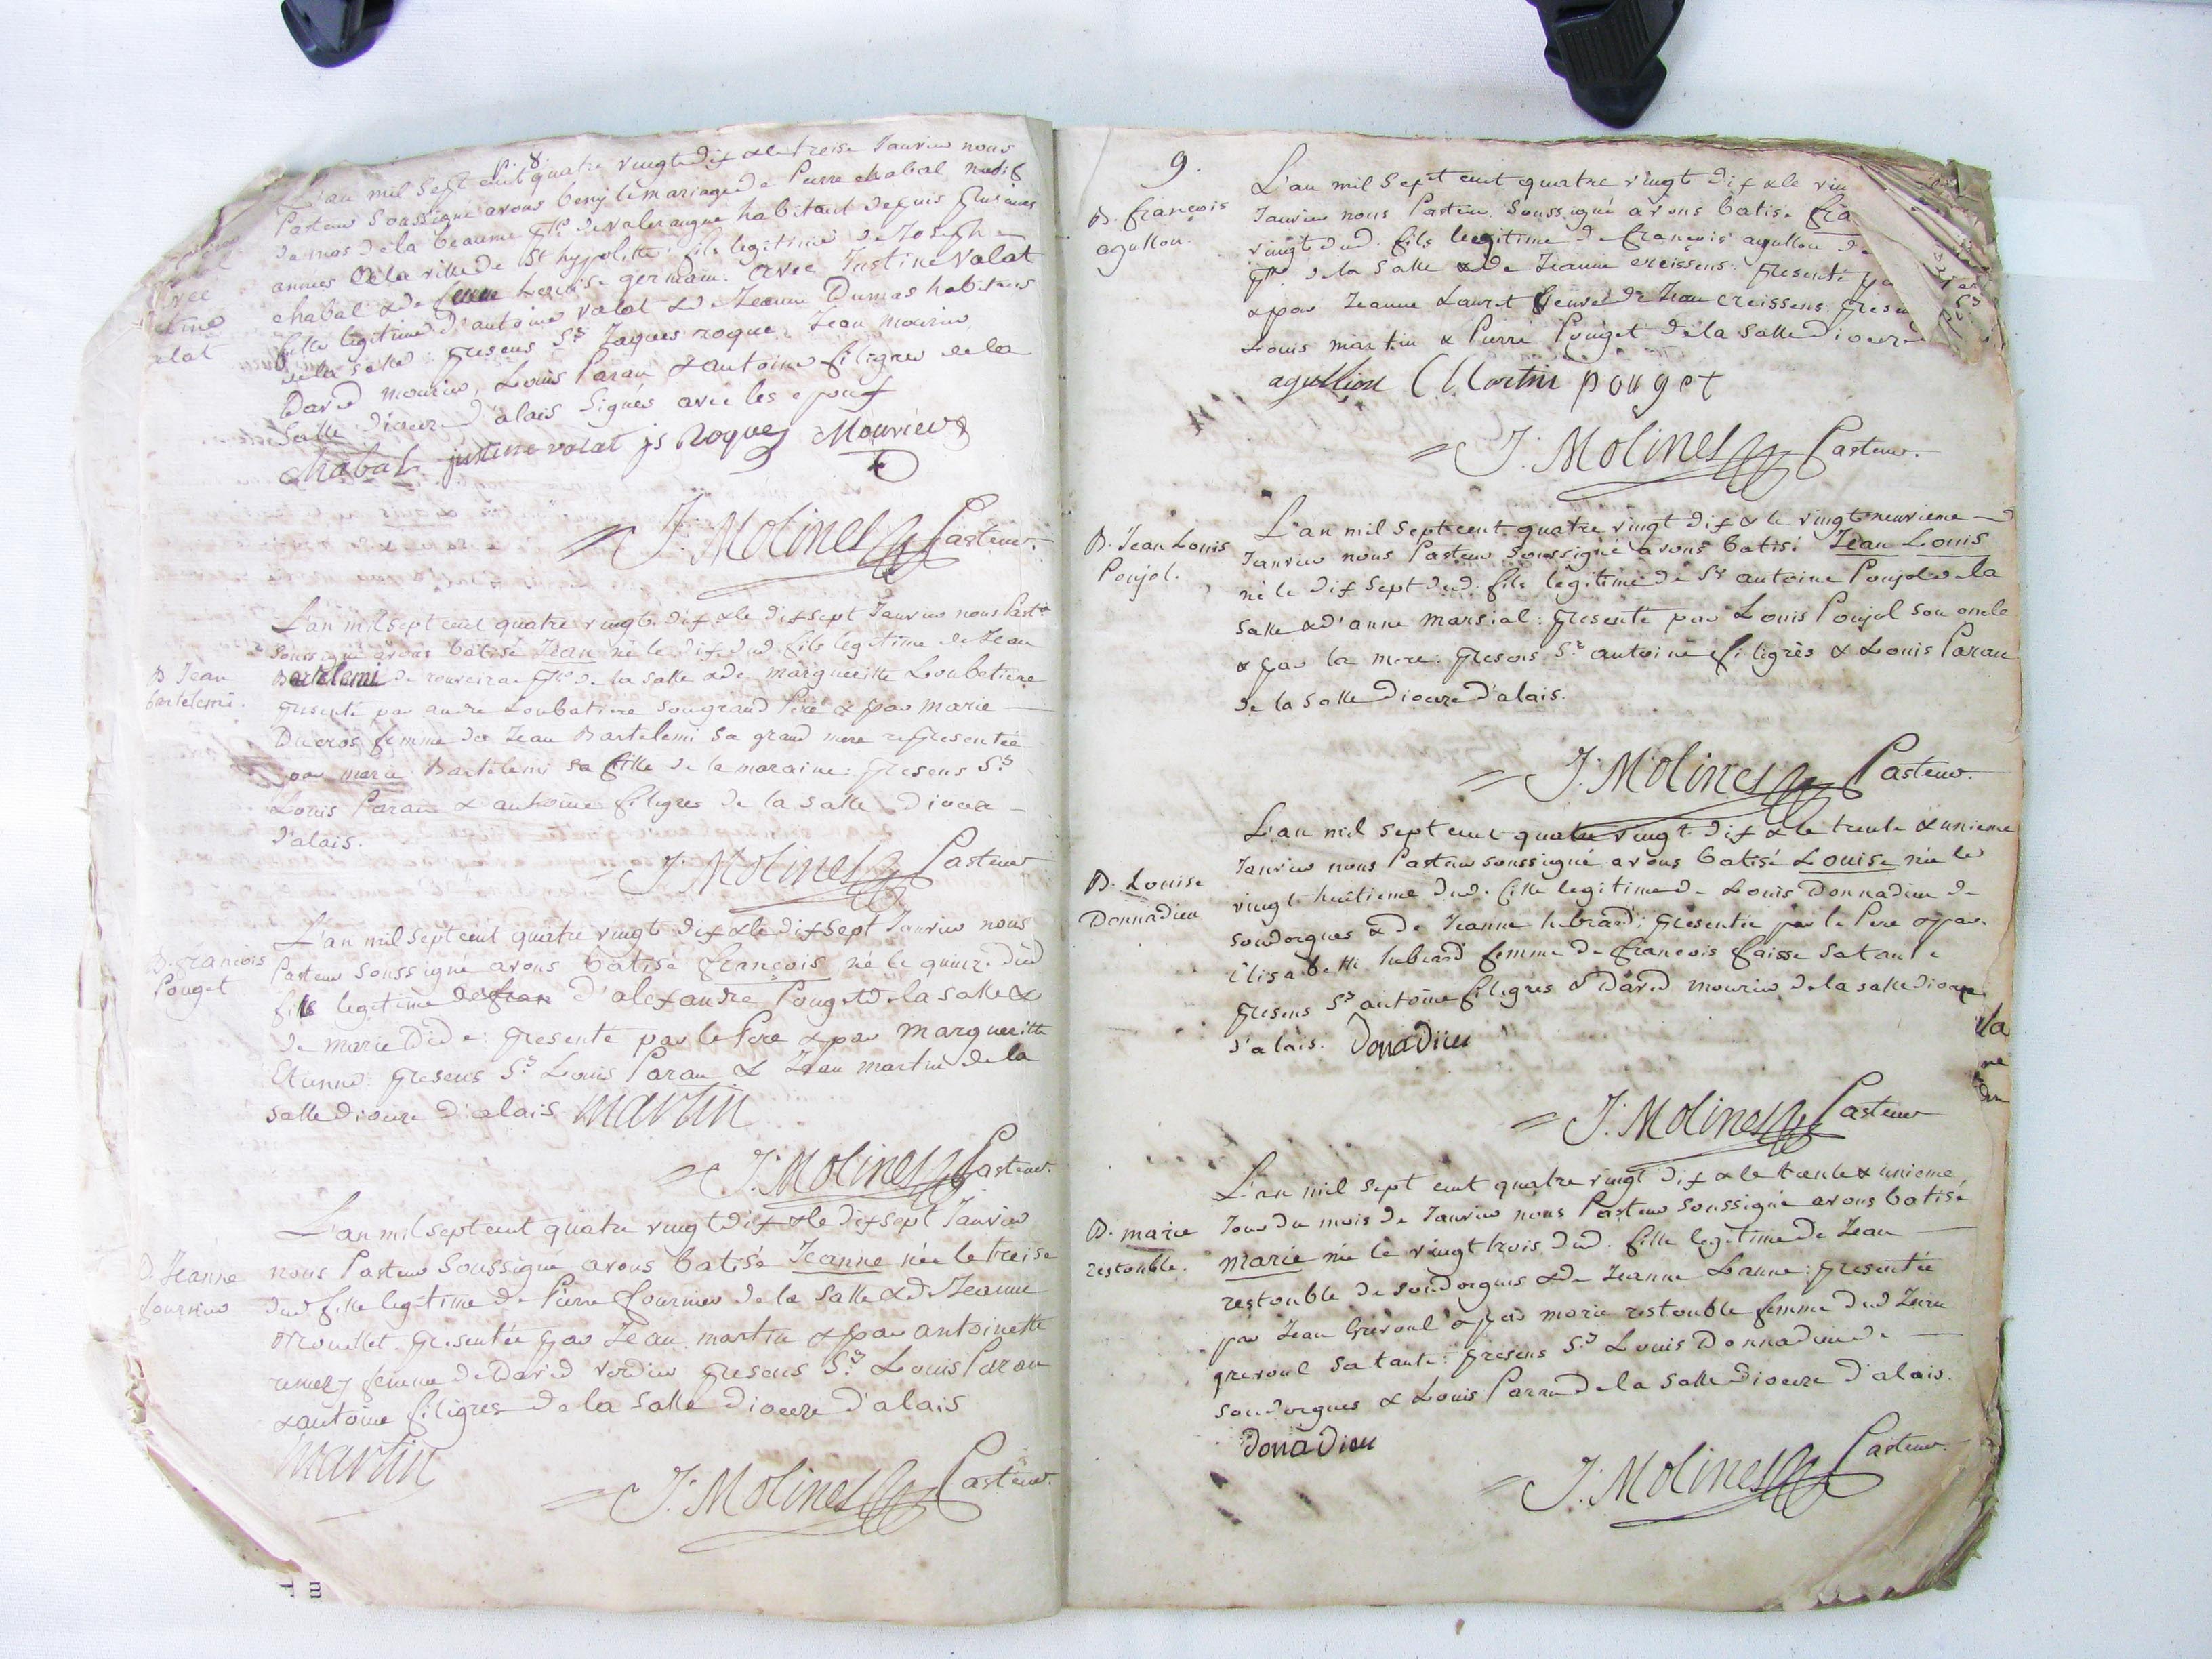 p. 8.
L'an mil Sept cent quatre vingt dix & le treise Janvier nous
Pasteur Soussigné avons beny le mariage de Pierre chabal natif
du mas de la beaume psse de valeraugue habitant depuis plusieurs
annees de la ville de St hypolitte: fils legitime de Joseph
chabal & de Louise germain. avec Justine Valat
fille legitime d'antoine valat & de Jeanne Dumas habitans
de la salle: presens Srs Jaques roque, Jean mourier
David mourier, Louis Paran & antoine filigres de la
Salle dioceze d'alais Signés avec les epoux
elat
chabal justine valat js Roques Mourier
J. Molines Pasteur.
L'an mil sept cent quatre vingt dix & le dix sept Janvier nous Pastr
soussigné avons batisé Jean né le dix dud. fils legitime de Jean
B Jean
bartelemi.
Bartelemi de rouveirac psse de la salle & de margueritte Loubatiere
presenté par andre Loubatiere son grand Pere & par marie
Ducros femme de Jean Bartelemi sa grand mere representée
par marie Bartelemi sa fille de la maraine: presens Srs
Louis Paran & antoine filigres de la salle dioceze
d'alais.
J. Molines Pasteur
L'an mil sept cent quatre vingt dix & le dix sept Janvier nous
B. francois
Pouget
Pasteur soussigné avons batisé françois né le quinze dud
fils legitime de fran d'alexandre Pouget de la salle &
de marie Dide: presenté par le Pere & par margueritte
Etienne: presens Srs Louis Paran & Jean martin de la
salle dioceze d'alais martin
J. Molines Pasteur.
L'an mil sept cent quatre vingt dix & le dix sept Janvier
B. Jeanne
fournier
nous Pasteur Soussigné avons batisé Jeanne née le treise
dud fille legitime de Pierre fournier de la salle & de Jeanne
Nouellet. presentée par Jean martin & par antoinette
femme de David verdier presens Srs Louis Paran
& antoine filigres de la salle dioceze d'alais
martin
J. Molines Pasteur.
9.
L'an mil Sept cent quatre vingt dix & le vin
B. françois
agullon.
Janvier nous Pasteur Soussigné avons batisé fra
vingt dud. fils legitime de françois agullon de
psse de la Salle & de Jeanne creissens: presenté pa
& par Jeanne Lauret veuve de Jean creissens: presen
Louis martin & Pierre Pouget de la salle dioceze
agullion Martin pouget
J. Molines Pasteur.
L'an mil sept cent quatre vingt dix & le vingt neuvieme
B. Jean Louis
Poujol.
Janvier nous Pasteur Soussigné avons batisé Jean Louis
né le dix sept dud. fils legitime de Sr antoine Poujol de la
salle & d'anne marsial: presenté par Louis Poujol son oncle
& par la mere: presens Srs antoine filigrès & Louis Paran
de la salle dioceze d'alais.
J. Molines Pasteur.
L'an mil sept cent quatre vingt dix & le trente & unieme
B. Louise
Donnadieu
Janvier nous Pasteur soussigné avons batisé Louise née le
vingt huitieme dud. fille legitime de Louis Donnadieu de
soudorgues & de Jeanne hebrard: presentée par le Pere & par
Elisabeth hebrard femme de francois faisse sa tante
presens Srs antoine filigres & David mourier de la salle dioceze
d'alais. Donadieu
la
J. Molines Pasteur
L'an mil sept cent quatre vingt dix & le trente & unieme
B. marie
restouble.
Jour du mois de Janvier nous Pasteur soussigné avons batisé
marie née le vingt trois dud. fille legitime de Jean
restouble de soudorgues & de Jeanne Lanne: presentée
par Jean Greroul & par marie restouble femme dud Jean
greroul sa tante: presens Srs Louis Donnadieu de
soudorgues & Louis Paran de la salle dioceze d'alais.
Donadieu
J. Molines Pasteur.